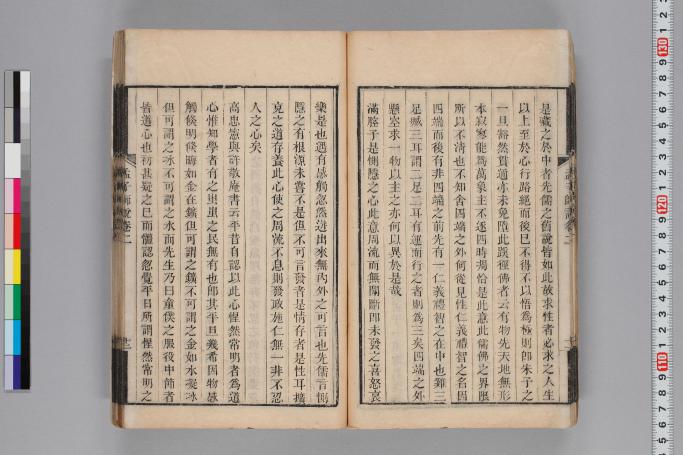 是藏之於中者先儒之舊說皆如此故求性者必求之人生
以上至於心行路絕而後已不得不以悟為極則即朱子之
一旦豁然貫通亦未免墮此蹊徑佛者云有物先天地無形
本寂寥能為萬象主不逐四時凋恰是此意此儒佛之界限
所以不清也不知舍四端之外何從見性仁義禮智之名因
四端而後有非四端之前先有一仁義禮智之在中也雞三
足臧三耳謂二足二耳有運而行之者則為三矣四端之外
懸空求一物以主之亦何以異於是哉
滿腔子是惻隱之心此意周流而無間斷即未發之喜怒哀
樂是也遇有感觸忽然迸出來無內外之可言也先儒言惻
隱之有根源未嘗不是但不可言發者是情存者是性耳擴
充之道存養此心使之周流不息則發政施仁無一非不忍
人之心矣
高忠憲與許敬庵書云平昔自認以此心惺然常明者為道
心惟知學者有之蚩蚩之民無有也即其平旦幾希因物感
觸倏明倏晦如金在鑛但可謂之鑛不可謂之金如水凝冰
但可謂之冰不可謂之水而先生乃曰童僕之服役中節者
皆道心也初甚疑之已而體認忽覺平日所謂惺然常明之
孟子師說卷二